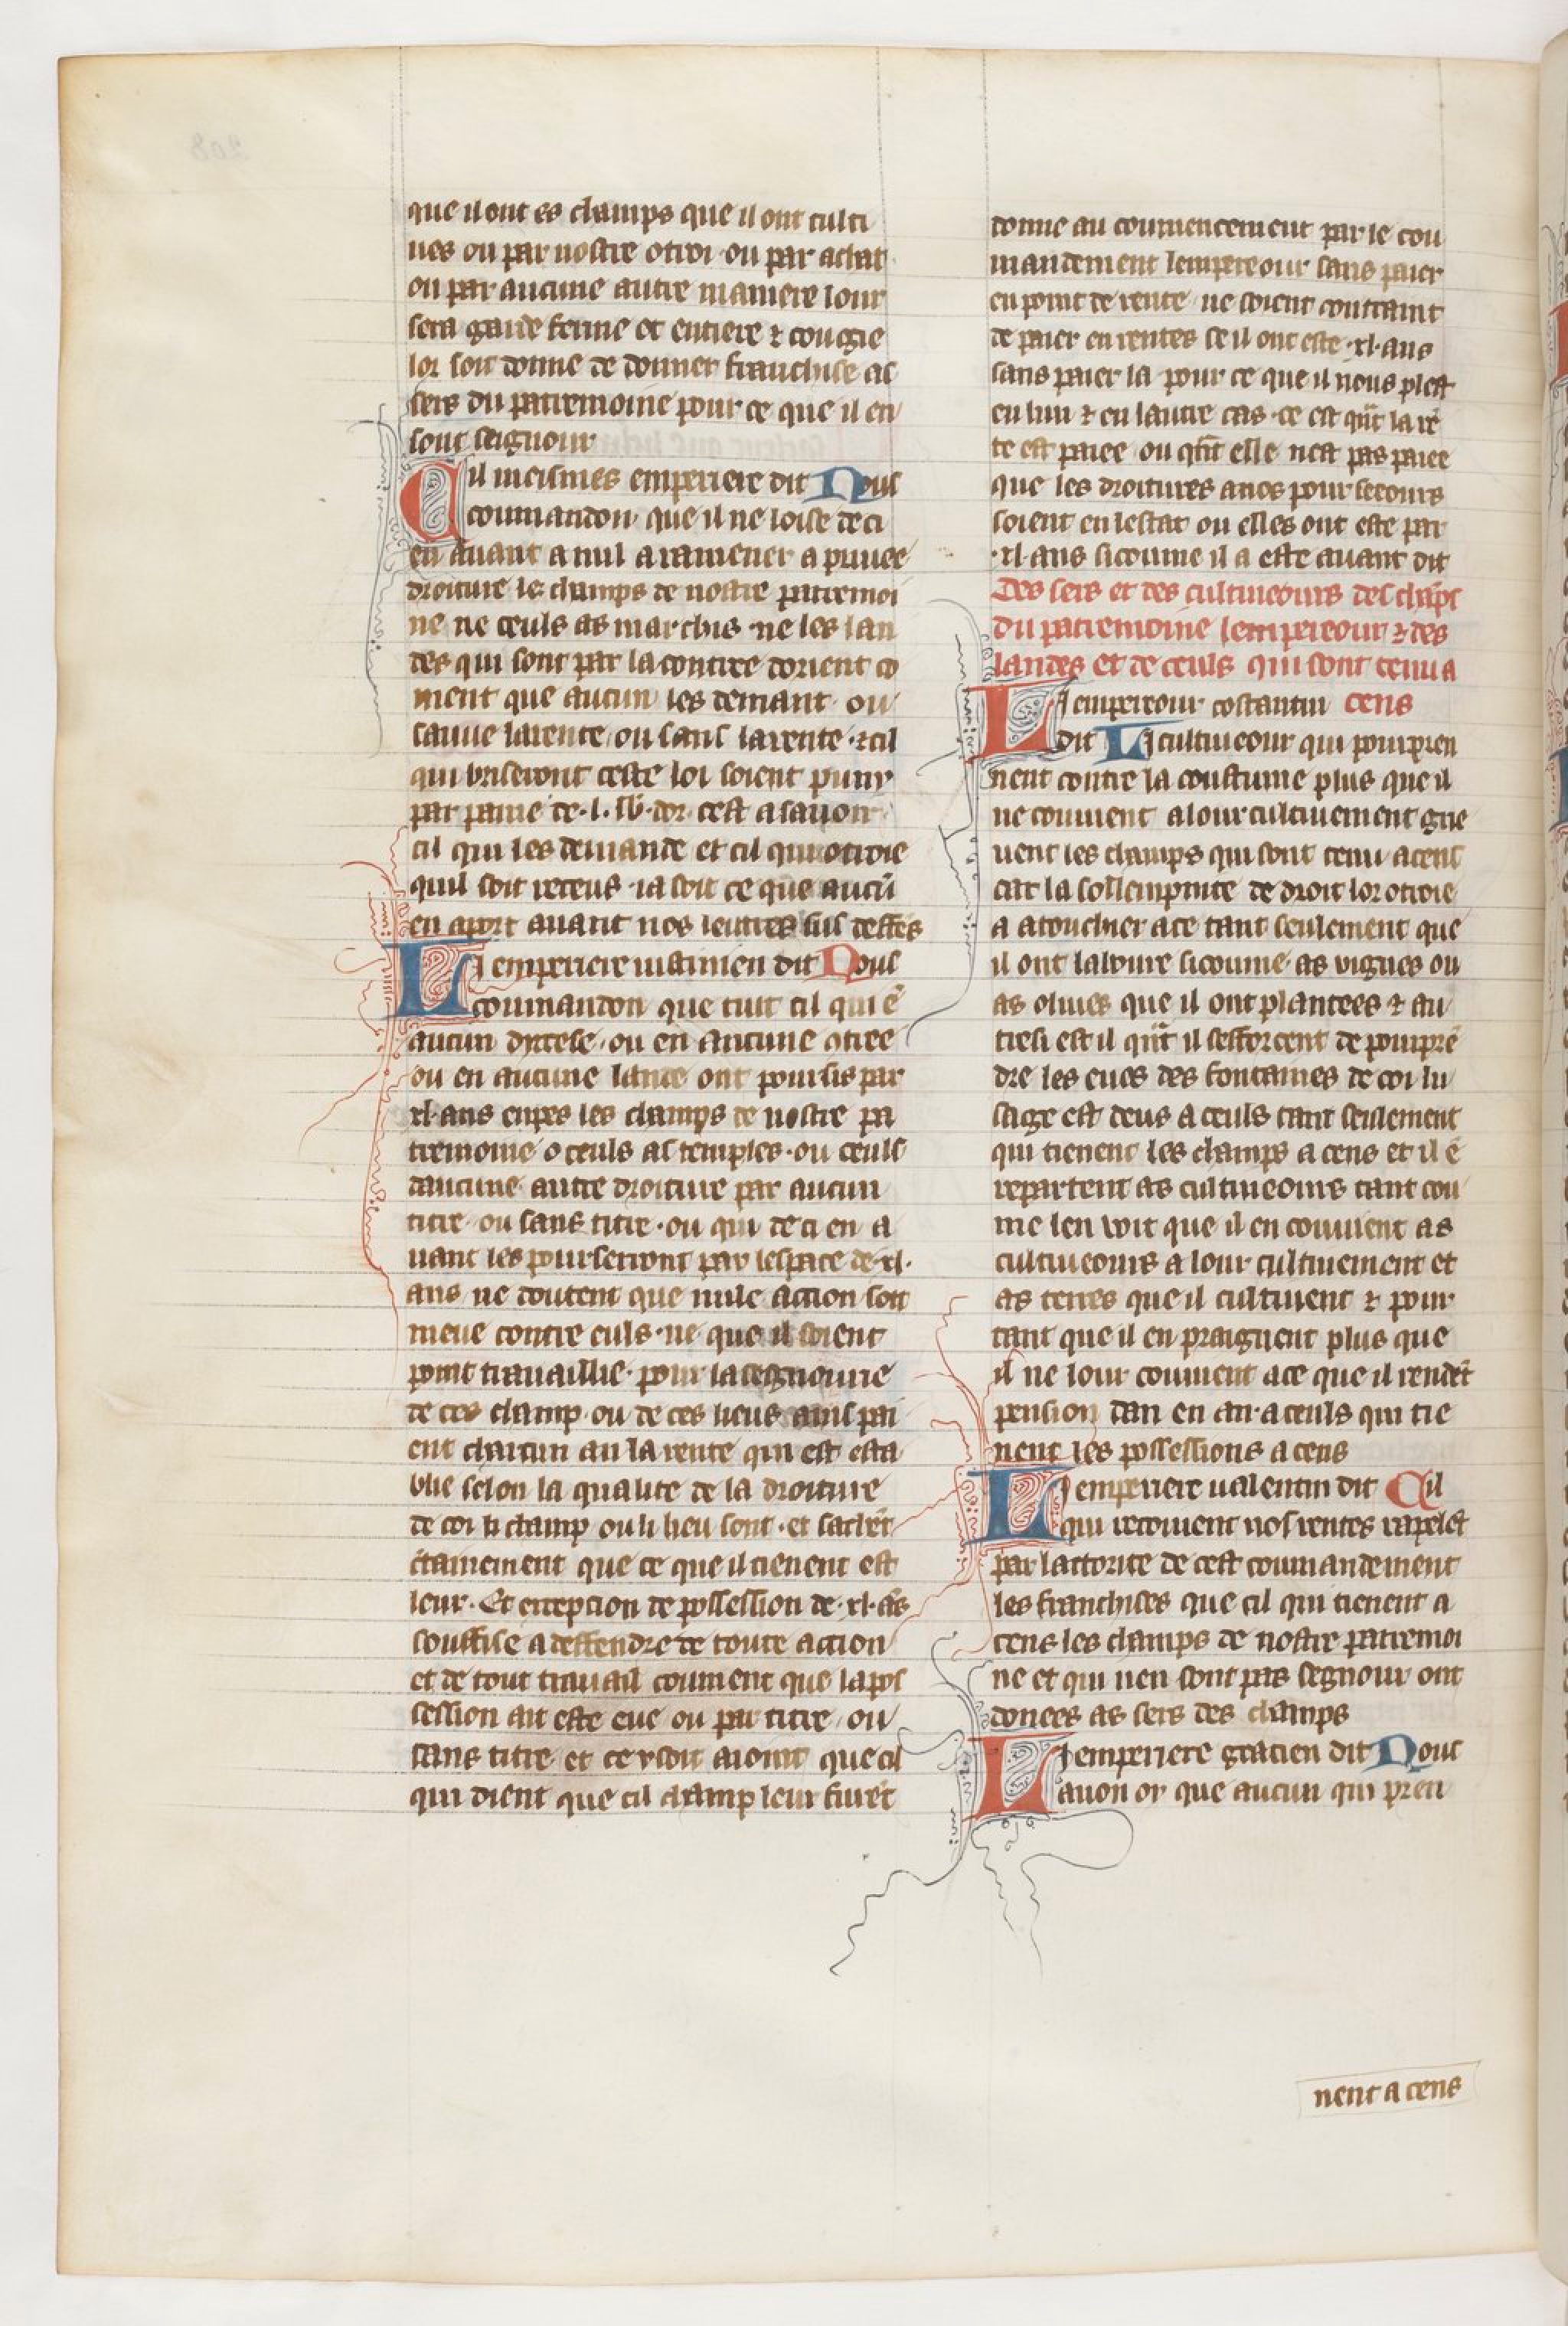 que il ont es champs que il ont culti
ues ou par nostre otroi ou par achat
ou par aucune autre maniere lour
sera garde ferme et entiere ⁊ congie
lor soit donne de donner franchise as
sers du patremoine pour ce que il en
sont seignour
Cil meismes emperiere dit Nous
commandon que il ne loise de ci
en auant a nul a ramener a priuee
droiture les champs de nostre patremoi
ne ne ceuls as marchis ne les lan
des qui sont par la contree dorient co
ment que aucun les demant ou
sauue la rente ou sans la rente ⁊ cil
qui briseront ceste loi soient puny
par paine de .l. lb̄. dor cest a sauoir
cil qui les demande et cil qui otroie
quil soit receus ia soit ce que aucū
en aport auant nos lettres sus desses
Li emperiere iustinien dit Nous
commandon que tuit cil qui ē
aucun dyocese ou en aucune otree
ou en aucune lande ont poursis par
xl. ans enpes les champs de nostre pa
tremoine o ceuls as temples ou ceuls
daucune autre droiture par aucun
titre ou sans titre ou qui de ci en a
uant les pourserront par lespace de .xl.
ans ne doutent que nule action soit
meue contre euls ne que il soient
point trauaillie pour la segnourie
de ces champ ou de ces lieus ains pai
ent chascun an la rente qui est esta
blie selon la qualite de la droiture
de coi li champ ou li lieu sont et sachēt
c̄tainement que ce que il tienent est
leur. Et exception de possession de .xl. ās
souffise a deffendre de toute action
et de tout trauail comment que la pos
session ait este eue ou par titre ou
sans titre et ce voit aiont que cil
qui dient que cil champ leur furēt
donne au commencement par le com
mandement lempereour sans paier
en point de rente ne soient contraint
de paier en rentes se il ont este .xl. ans
sans paier la pour ce que il nous plest
en lun ⁊ en lautre cas ce est qūt la rē
te est paiee ou qūt elle nest pas paiee
que les droitures a nos pour secours
soient en lestat ou elles ont este par
.xl. ans si comme il a este auant dit
Des sers et des cultiueours des chāps
du patremoine lempereour ⁊ des
landes et de ceuls qui sont tenu a
cens
Li empereour costantin
dit Li cultiueour qui pourpren
nent contre la coustume plus que il
ne conuient a lour cultiuement grie
uent les champs qui sont tenu a cens
car la sollempnite de droit lor otroie
a atouchier a ce tant seulement que
il ont laboure si comme as vignes ou
as oliues que il ont plantees ⁊ au
tresi est il qūt il sefforcent de pourprē
dre les eues des fontaines de coi lu
sage est deus a ceuls tant seulement
qui tienent les champs a cens et il ē
repartent as cultiueours tant com
me len voit que il en conuient as
cultiueours a lour cultiuement et
as terres que il cultiuent ⁊ pour
tant que il en praignent plus que
il ne lour conuient a ce que il rendēt
pension dan en an a ceuls qui tie
nent les possessions a cens
Li emperiere ualentin dit Cil
qui recoiuent nos rentes rapelēt
par lattorite de cest commandement
les franchises que cil qui tienent a
cens les champs de nostre patremoi
ne et qui nen sont pas segnour ont
donees as sers des champs
Li emperiere gracien dit Nous
auon oy que aucun qui pren
nent a cens